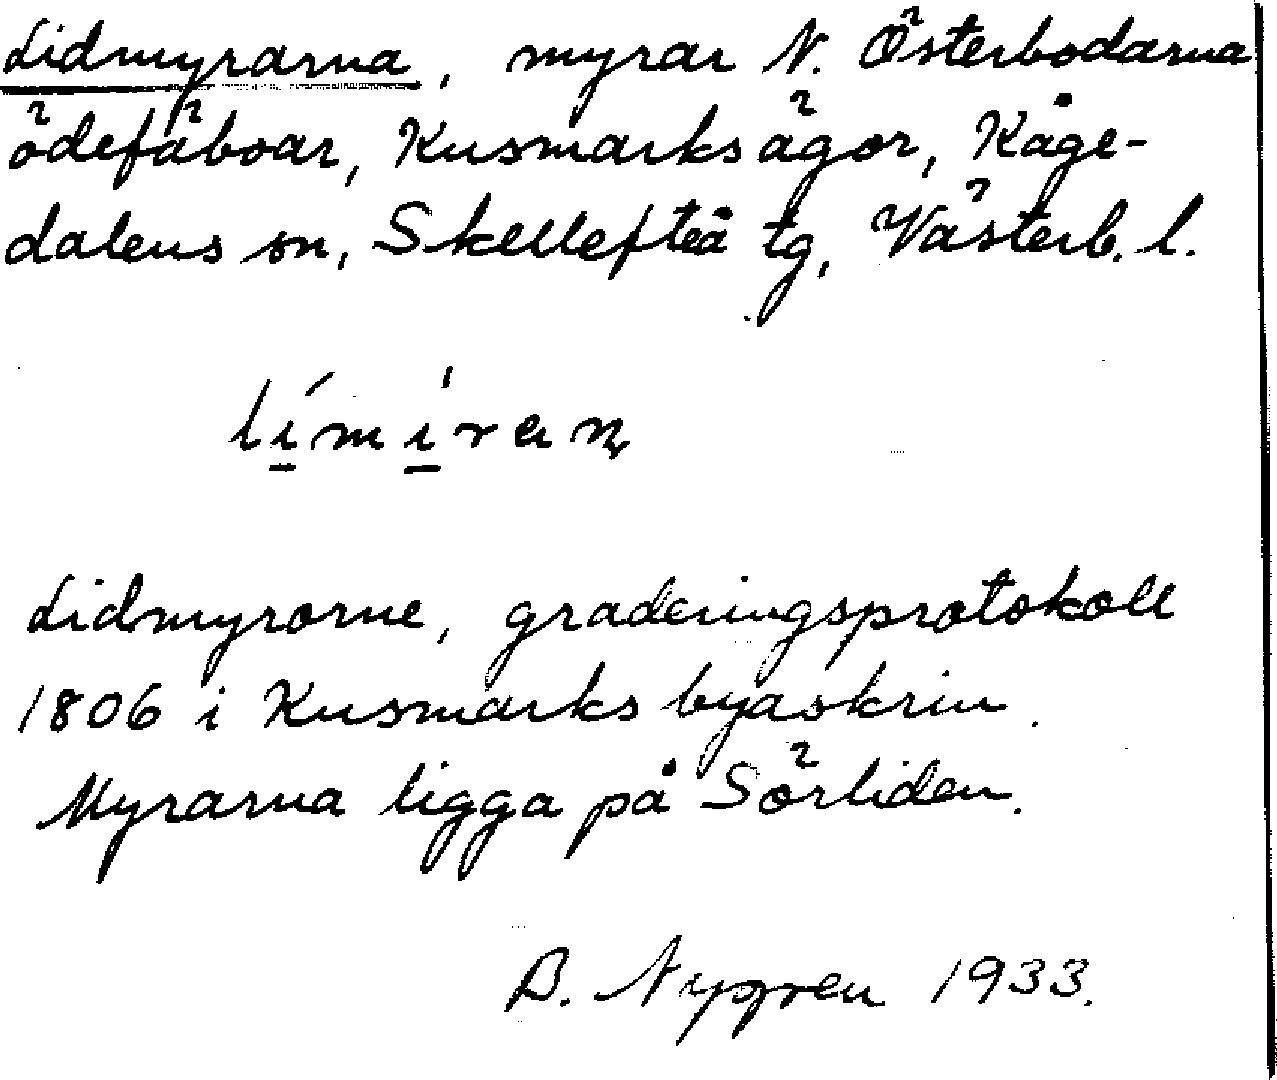 Lidmyrarna, myrar N. Österbodarna
ödefäboar, Kusmarks ägor, Kåge-
dalens sn, Skellefteå tg, Västerb. l.
li̱´mi̱´ran
Lidmyrorne, graderingsprotokoll
1806 i Kusmarks byaskrin.
Myrarna ligga på Sörliden.
B. Nygren 1933.